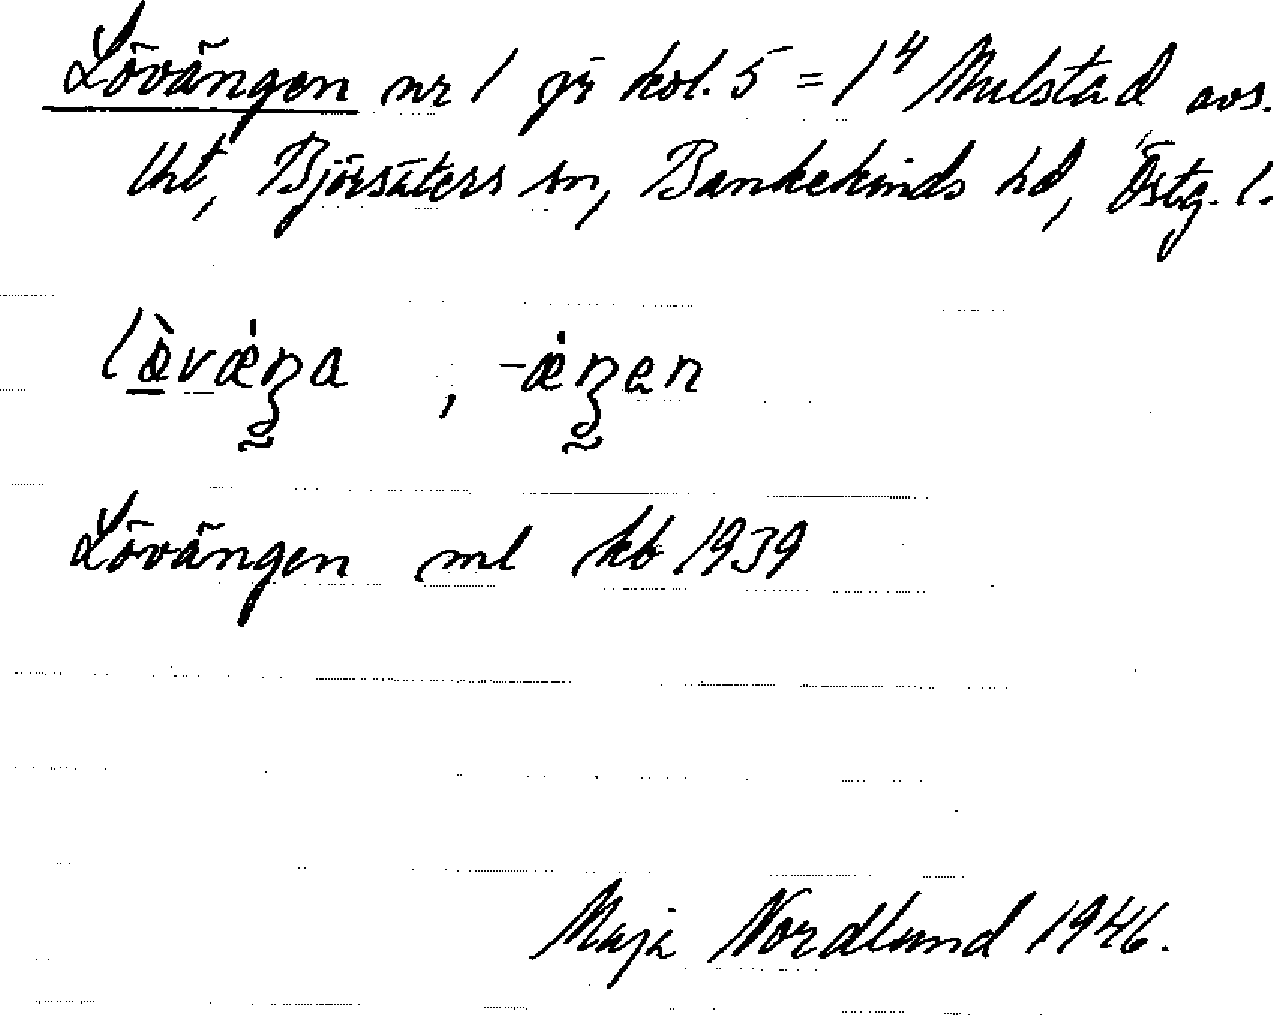 Lövängen nr 1 på kol. 5 = 1⁴ Mulstad avs.
lht, Björsäters sn, Bankekinds hd, Östg. l.
Lövängen ml kb 1939
Maja Nordlund 1946.